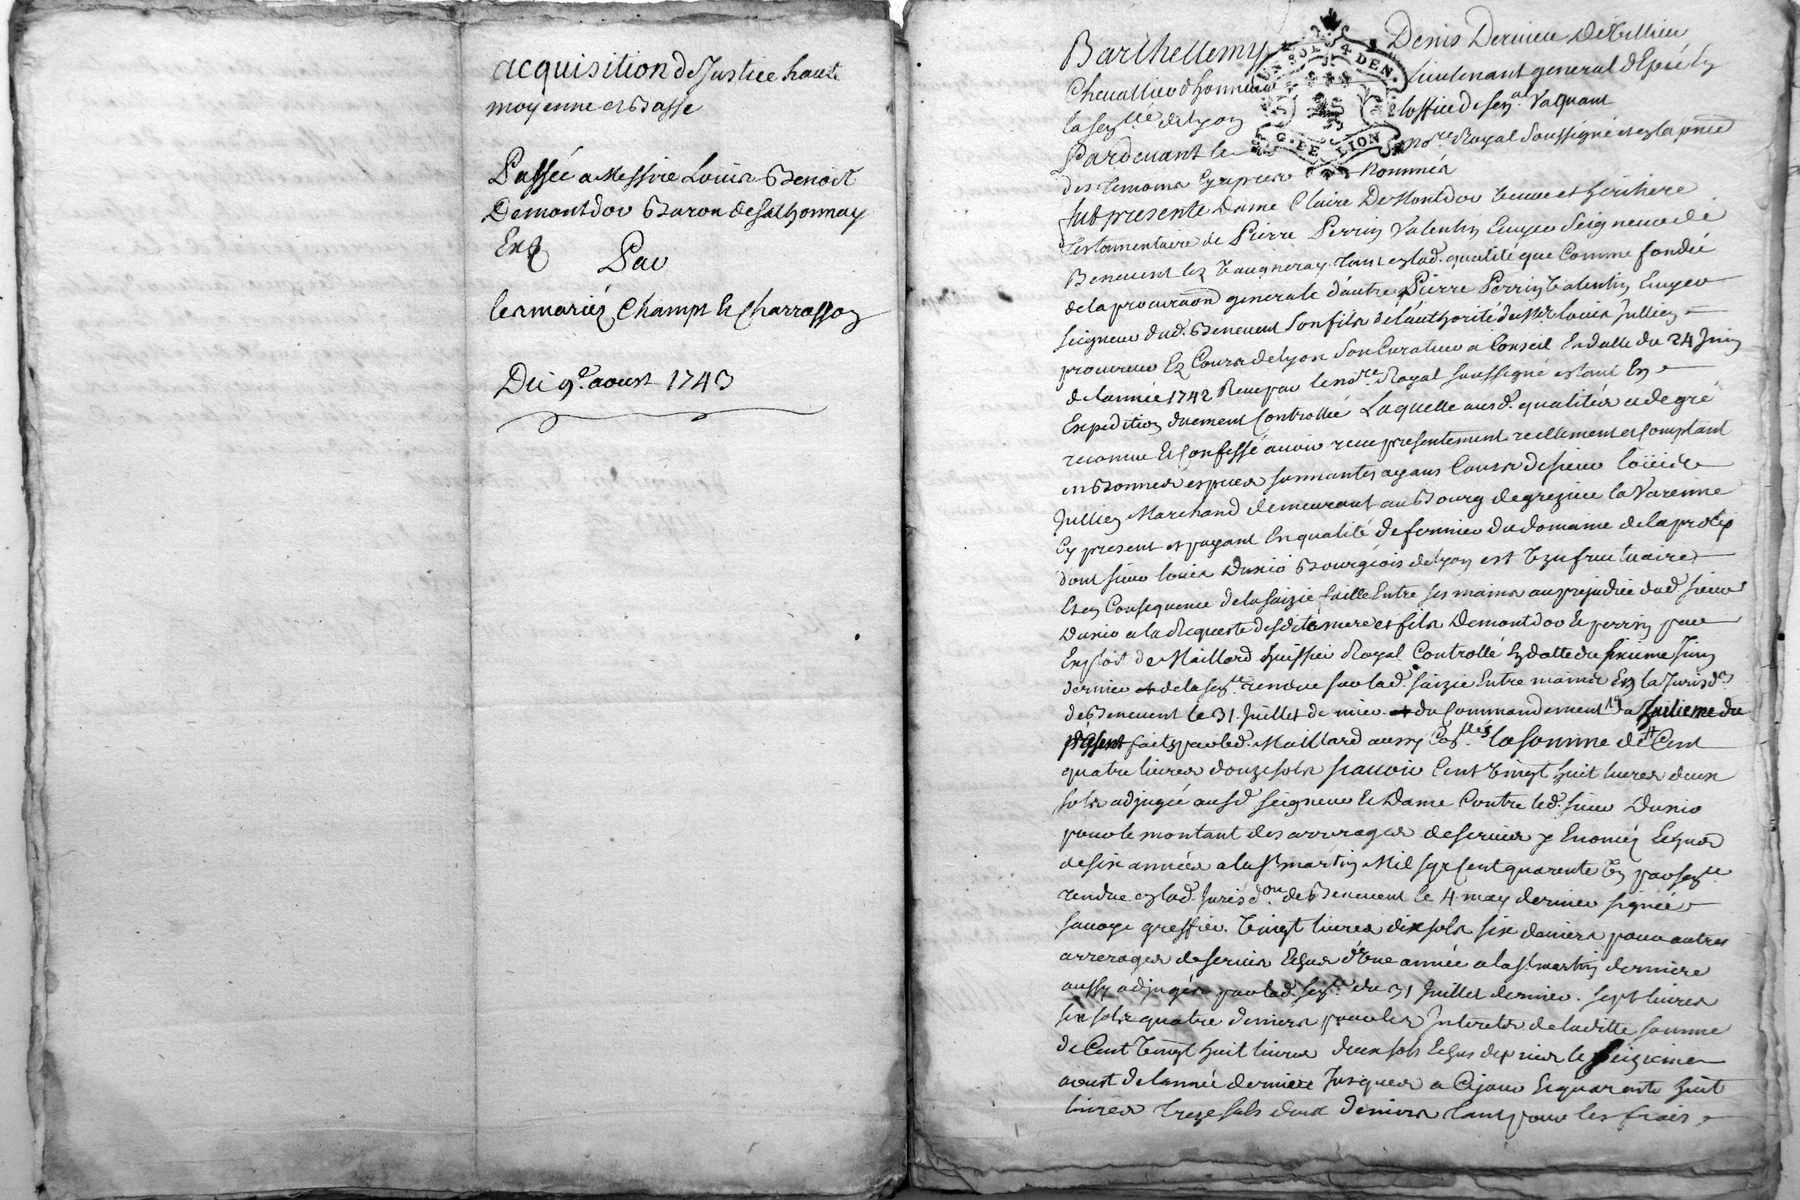 acquisition de Justice haute
moyenne et Basse
Passée a Messire Louis Benoist
Demontdor Baron de
Par
les mariés Champt & Charrasson
Du 9e. aoust 1743
Barthellemy Denis Dervieu De Villieu
Chevallier d'honneur lieutenant general d'Epée
la Senllé de Lyon l'office de Senal Vaquant
UN SOL 4 DEN.
G. DE LION
Pardevant le Nore. Royal Soussigné et en la pnce
des temoins Cy apres Nommés
fut presente Dame Claire De Montdor veuve et heritiere
testamentaire de Pierre Perrin Valentin Ecuyer Seigneur de
Benevent lez Vaugneray tant en lad. qualité que Comme fondée
de la procuraon generale d'autre Pierre Perrin Valentin Ecuyer
seigneur dud. Benevent son fils de l'authorité de Mr. Louis Jullien
procureur Ez Cours de Lyon son Curateur a Conseil En datte du 24 Juin
de l'année 1742 Reçu par le nore. Royal soussigné
Expedition duement Controllée Laquelle ausd. qualités a de gré
reconnue & Confessé avoir reçu presentement reellement et Comptant
en Bonnes especes sonnantes ayans Cours de sieur Louis
Jullien Marchand demeurant au Bourg de grezieu la Varenne
Cy present et payant En qualité de fermier du domaine de la
dont sieur Louis Dunio Bourgeois de Lyon est Uzufructuaire
Et en Consequence de la saizie faitte Entre ses mains au prejudice dud. sieur
Dunio a la Requeste desdits mere et fils Demontdor & perrin par
Exploit de Maillard huissier Royal Controllé En datte du sixieme Juin
dernier de la sence. rendue sur lad. saizie Entre mains En la Jurisdon
de Benevent le 31 Juillet dernier du Commandement du huitieme du
présent fait par led. Maillard aussy la somme de Cent
quatre livres douze sols scavoir Cent vingt huit livres deux
sols adjugée ausd. seigneur & Dame Contre led. sieur Dunio
pour le montant des arrerages de servis & Echus
de six années a la St. martin Mil sept Cent quarante Un par sence.
rendue en lad. Jurisdon. de Benevent le 4 may dernier signée
sauoge greffier. Vingt livres dix sols six deniers pour autres
arrerages de servis Echus d'Une année a la St. martin derniere
aussy adjugés par lad. sence. du 31 Juillet dernier. sept livres
six sols quatre deniers pour les Interets de laditte somme
de Cent Vingt huit livres deux sols Echus depuis le seizieme
aoust de l'année derniere Jusques a Cejour Et quarante huit
livres treze sols deux deniers tant pour les frais